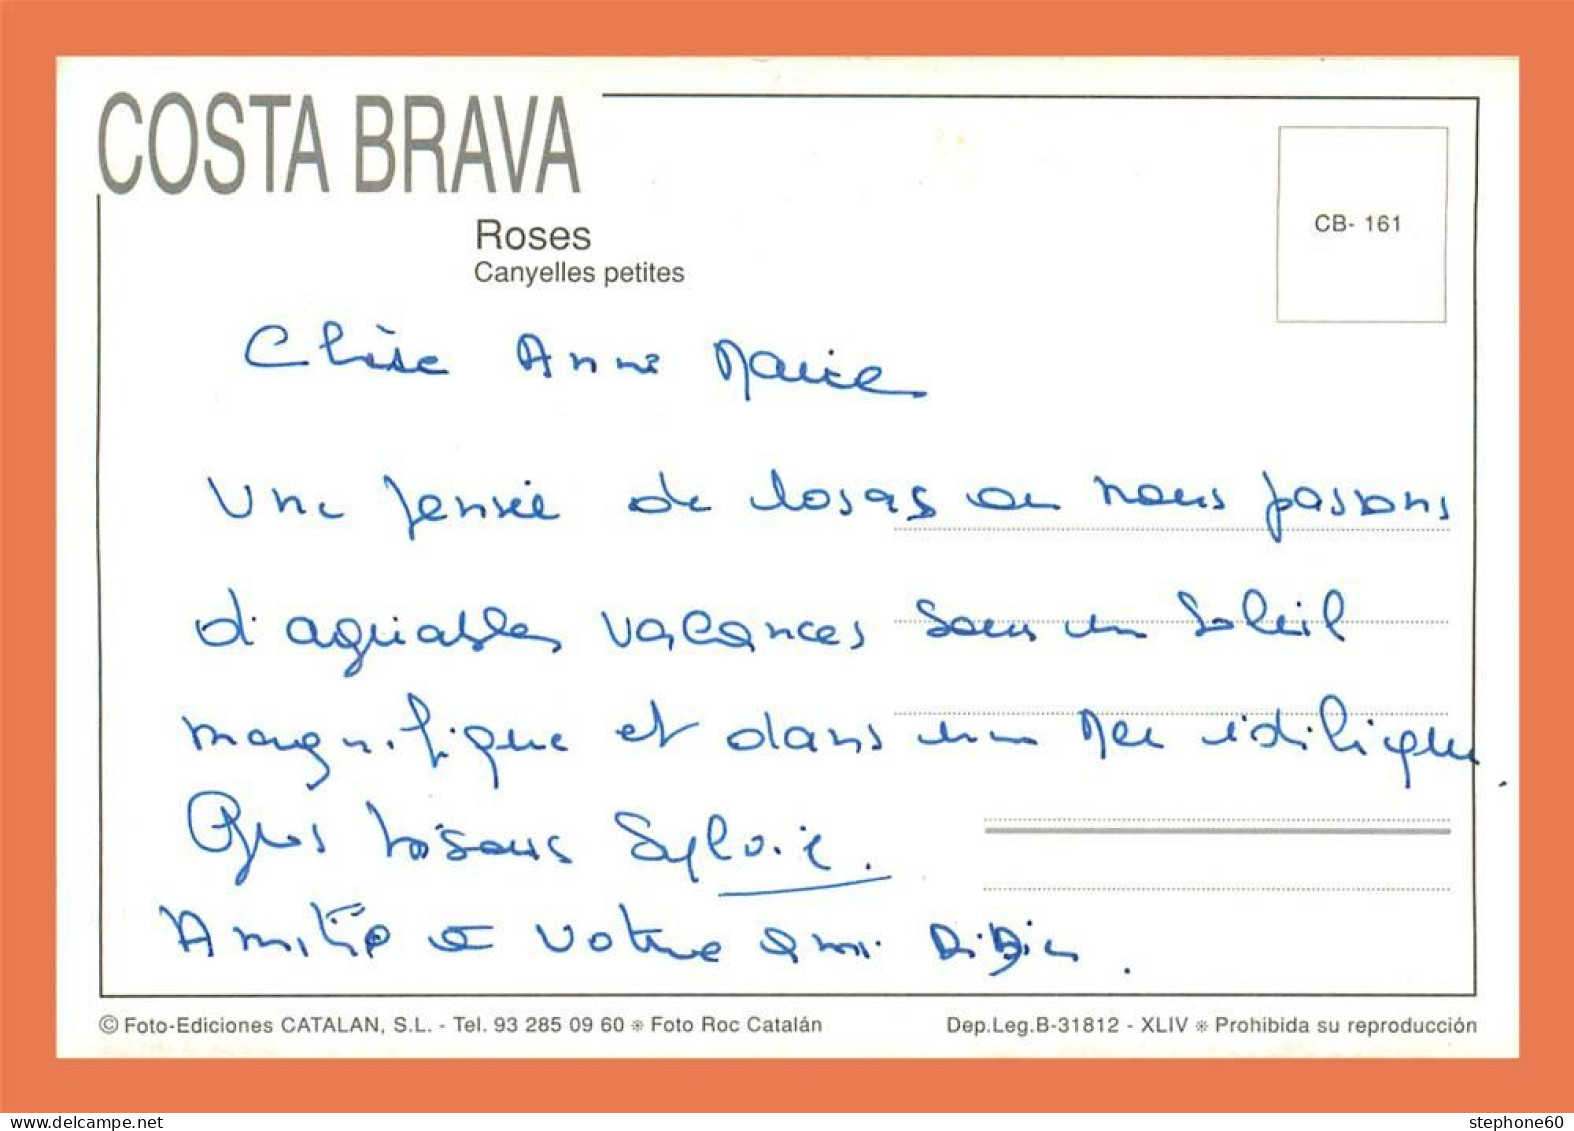 COSTA BRAVA
Roses
Canyelles petites
CB- 161
Chère Anne Marie
Une pensée de Rosas où nous passons
d'agréables vacances sous un soleil
magnifique et dans une Mer idilique.
Gros bisous Sylvie.
Amitié à votre ami Didier.
© Foto-Ediciones CATALAN, S.L. - Tel. 93 285 09 60 ⁕ Foto Roc Catalán
Dep.Leg.B-31812 - XLIV ⁕ Prohibida su reproducción
stephone60